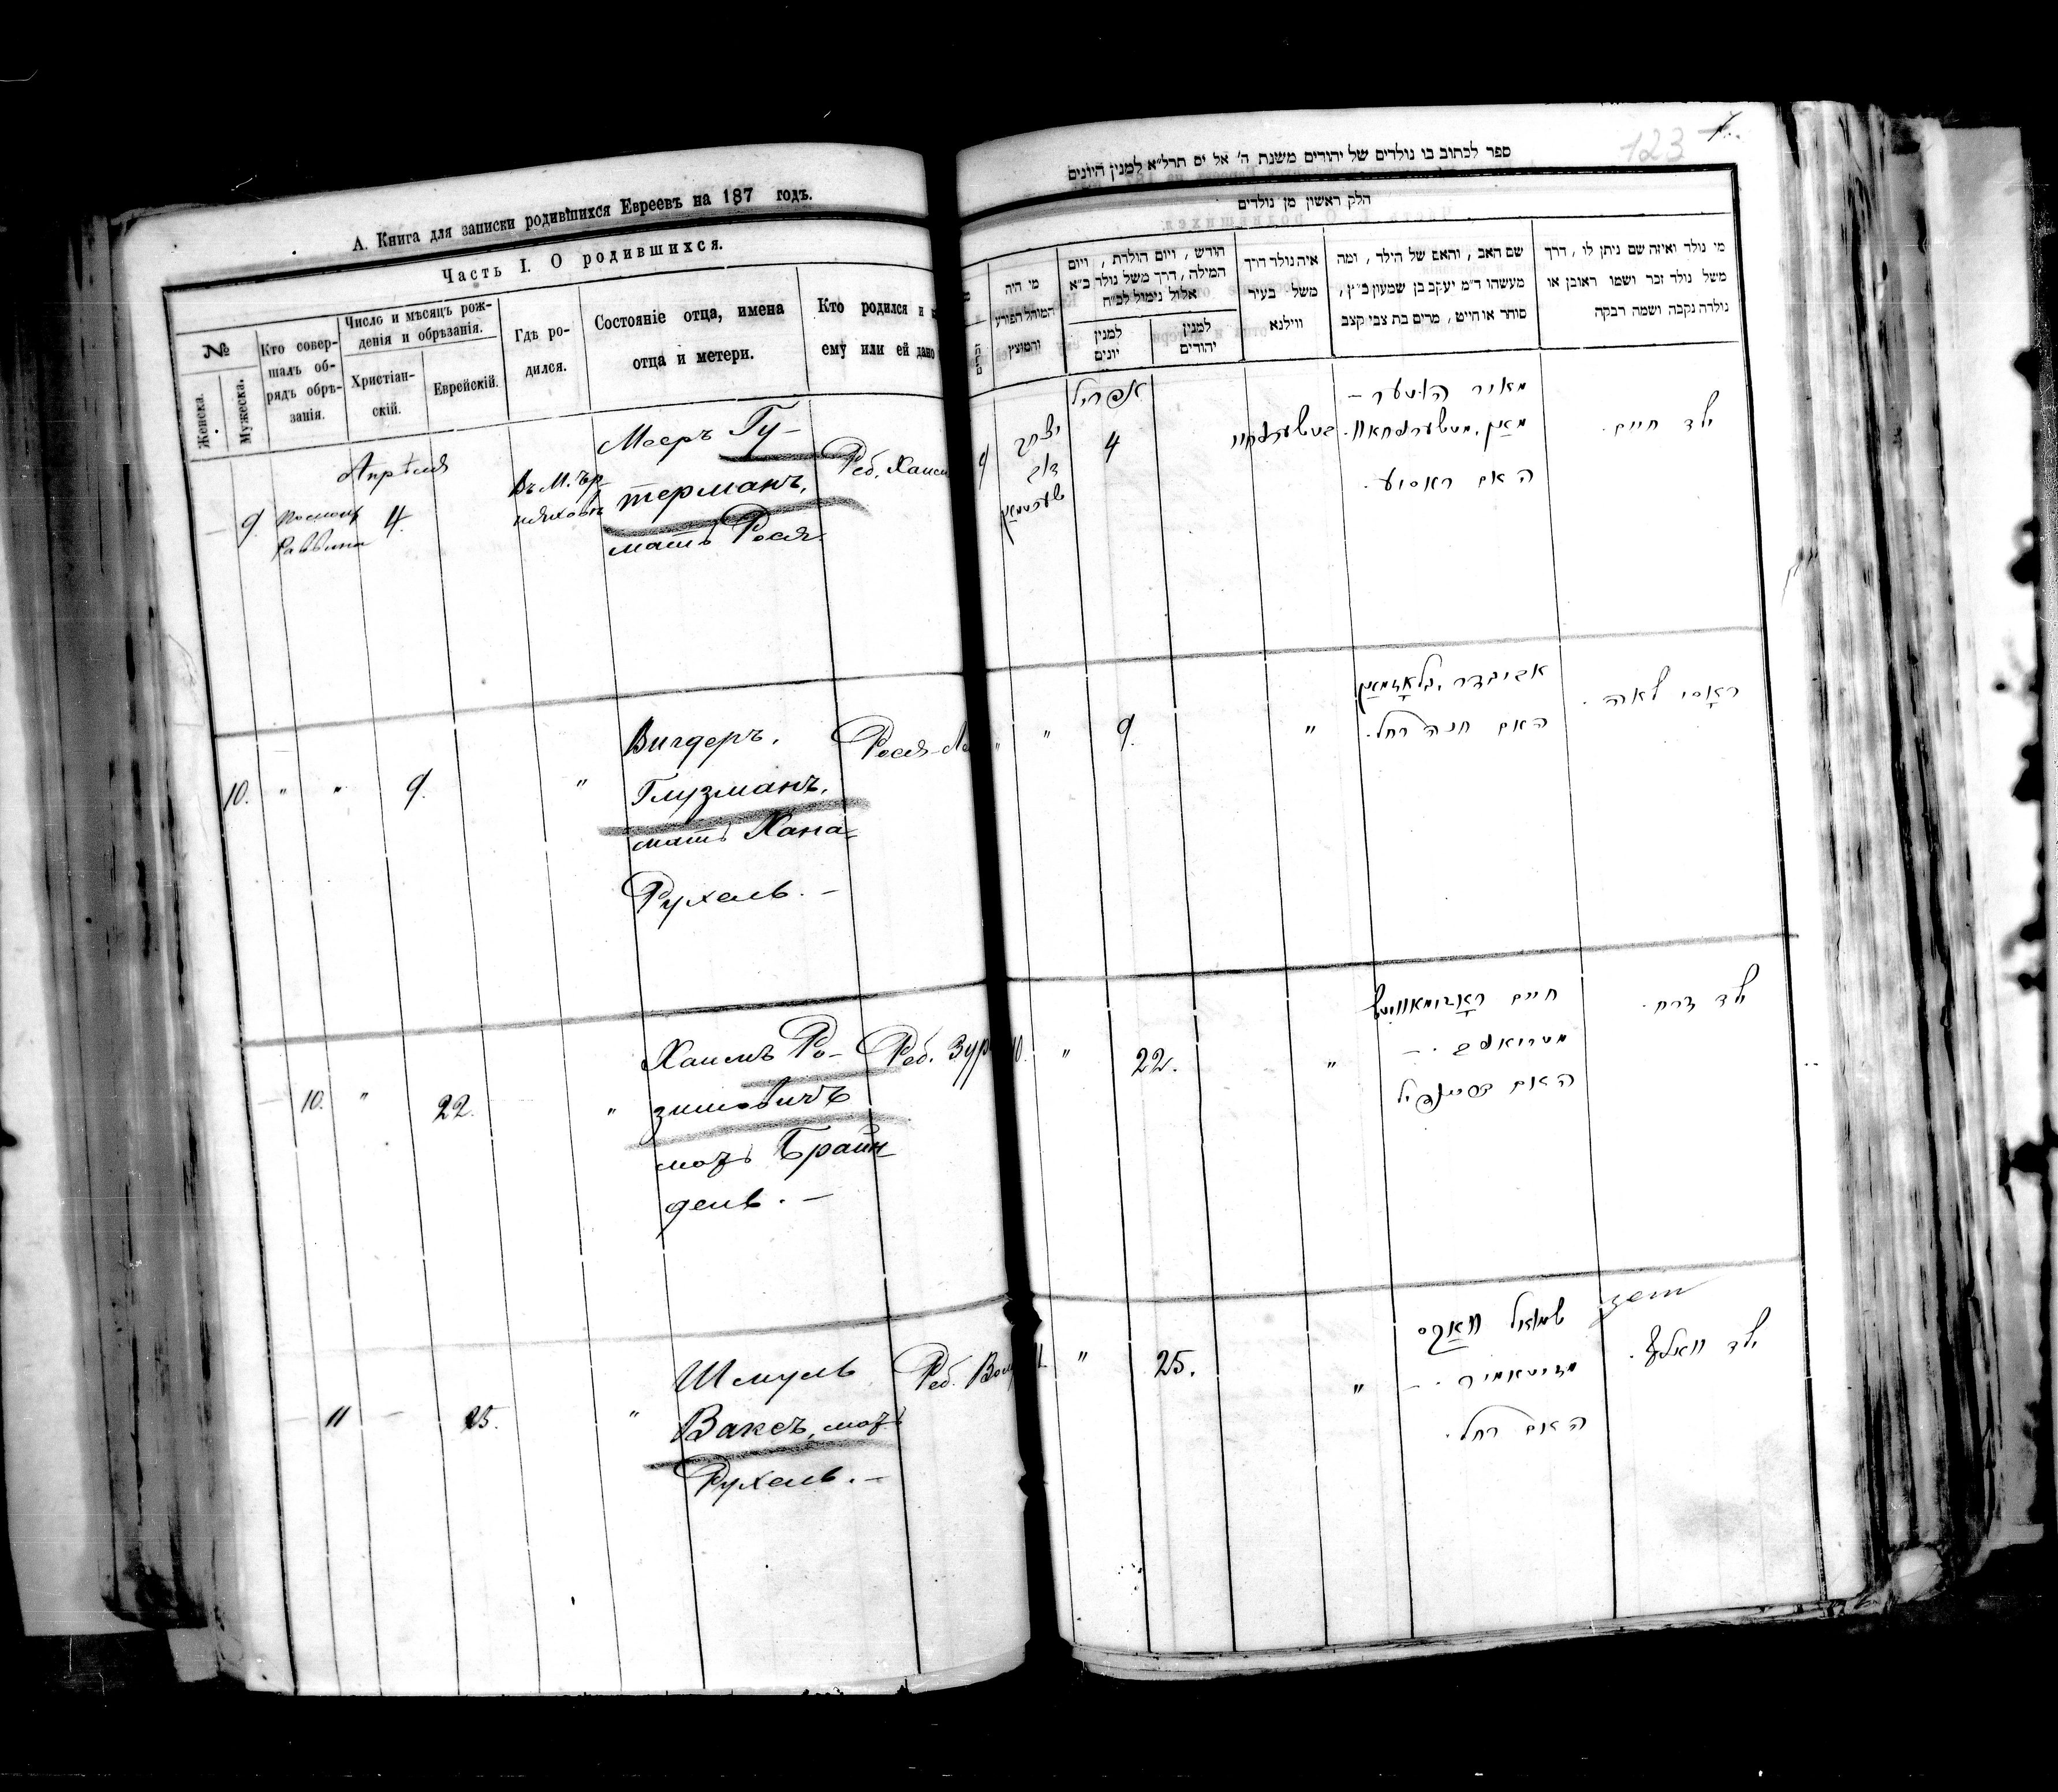 А. Книга для записки родившихся Евреевъ на 187 годъ.
Часть I. О родившихся.
№
Женска.
Мужеска.
Кто совер-
шалъ об-
рядъ обрѣ-
занія.
Число и мѣсяцъ рож-
денія и обрѣзанія.
Христіан-
скій.
Еврейскій.
Гдѣ ро-
дился.
Состояніе отца, имена
отца и метери.
Кто родился и
ему или ей дано
Апрѣля
9.
Раввина
4.
Въ М.
Мееръ Гу-
терманъ,
мать Рося.
Реб. Хаим
10. " " 9. "
Вигдеръ.
Глузманъ,
мать Хана-
Рухель. —
Рося-Ле
— 10. " 22. "
Хаимъ Ро-
зимовичъ
мать Браин
дель. —
Реб. Зур
— 11 — 25. "
Шмуль
Ваксъ, мать
Рухель. —
Реб. Вол
123
ספר לכתוב בו נולדים של יהודים משנת ה' אל ים תרל"א למנין היונים
חלק ראשון מן נולדים
מי היה
המוהל הפורע
והמוצץ
חודש , ויום הולדת , ויום
המילה , דרך משל נולד כ"א
אלול נימול לכ"ח
למנין
יונים
למנין
יהודים
איה נולד דרך
משל בעיר
ווילנא
שם האב , והאם של הילד , ומה
מעשהו ד"מ יעקב בן שמעון כ"ץ ,
סוחר או חייט , מרים בת צבי קצב
מי נולד ואיזה שם ניתן לו , דרך
משל נולד זכר ושמו ראובן או
נולדה נקבה ושמה רבקה
אפריל
9
יצחק
4
מאיר הוטער —
האם ראסיע.
ילד חיים.
" " 9. "
אביגדר גלאָזמאַן
האם חנה רחל.
ראָסי לאה.
10. " 22. "
חיים ראָזימאוויטש
האם
ילד זרח.
" 25. "
שמואל וואַקס
האם רחל.
ילד וואלף.